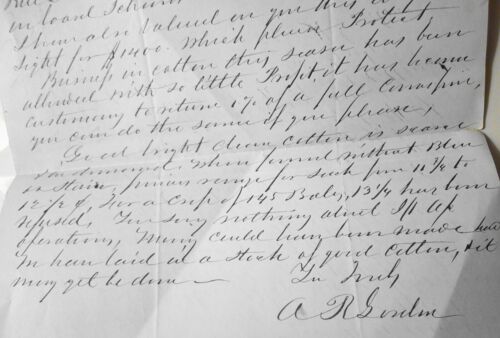 in
I have also valued on you this
sight for $1400. which please Protect
Business in cotton this season has been
attended with so little Profit it has become
customary to return ½ of a full Commission,
you can do the same if you please,
Good bright clean Cotton is scarce
& in demand. When found without Blue
or Stain, prices range for such from 11 3/4 to
12 1/2 ¢. For a Crop of 145 Bales, 13 1/4 has been
refused, You say nothing about
operations, Money could have been made
in laid in a stock of good Cotton, & it
may yet be done —
Yr Truly
A R Gordon